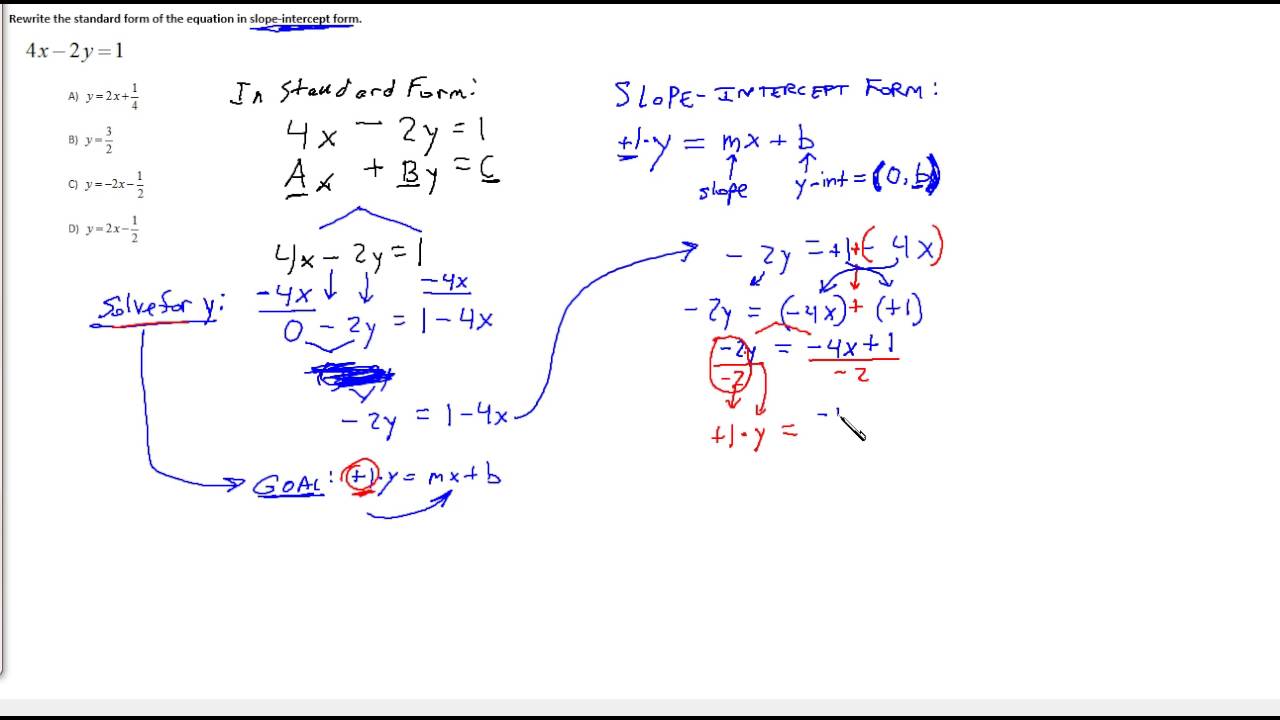 Rewrite the standard form of the equation in slope-intercept form.
4x − 2y = 1
A) y = 2x + 1/4
B) y = 3/2
C) y = −2x − 1/2
D) y = 2x − 1/2
In Standard Form:
4x − 2y = 1
Ax + By = C
4x − 2y = 1
−4x −4x
0 − 2y = 1 − 4x
Solve for y:
−2y = 1 − 4x
GOAL: +1·y = mx + b
SLOPE-INTERCEPT FORM:
+1·y = mx + b
slope y-int = (0, b)
− 2y = +1 + (− 4x)
− 2y = (−4x) + (+1)
−2y = −4x + 1
−2 −2
+1·y =